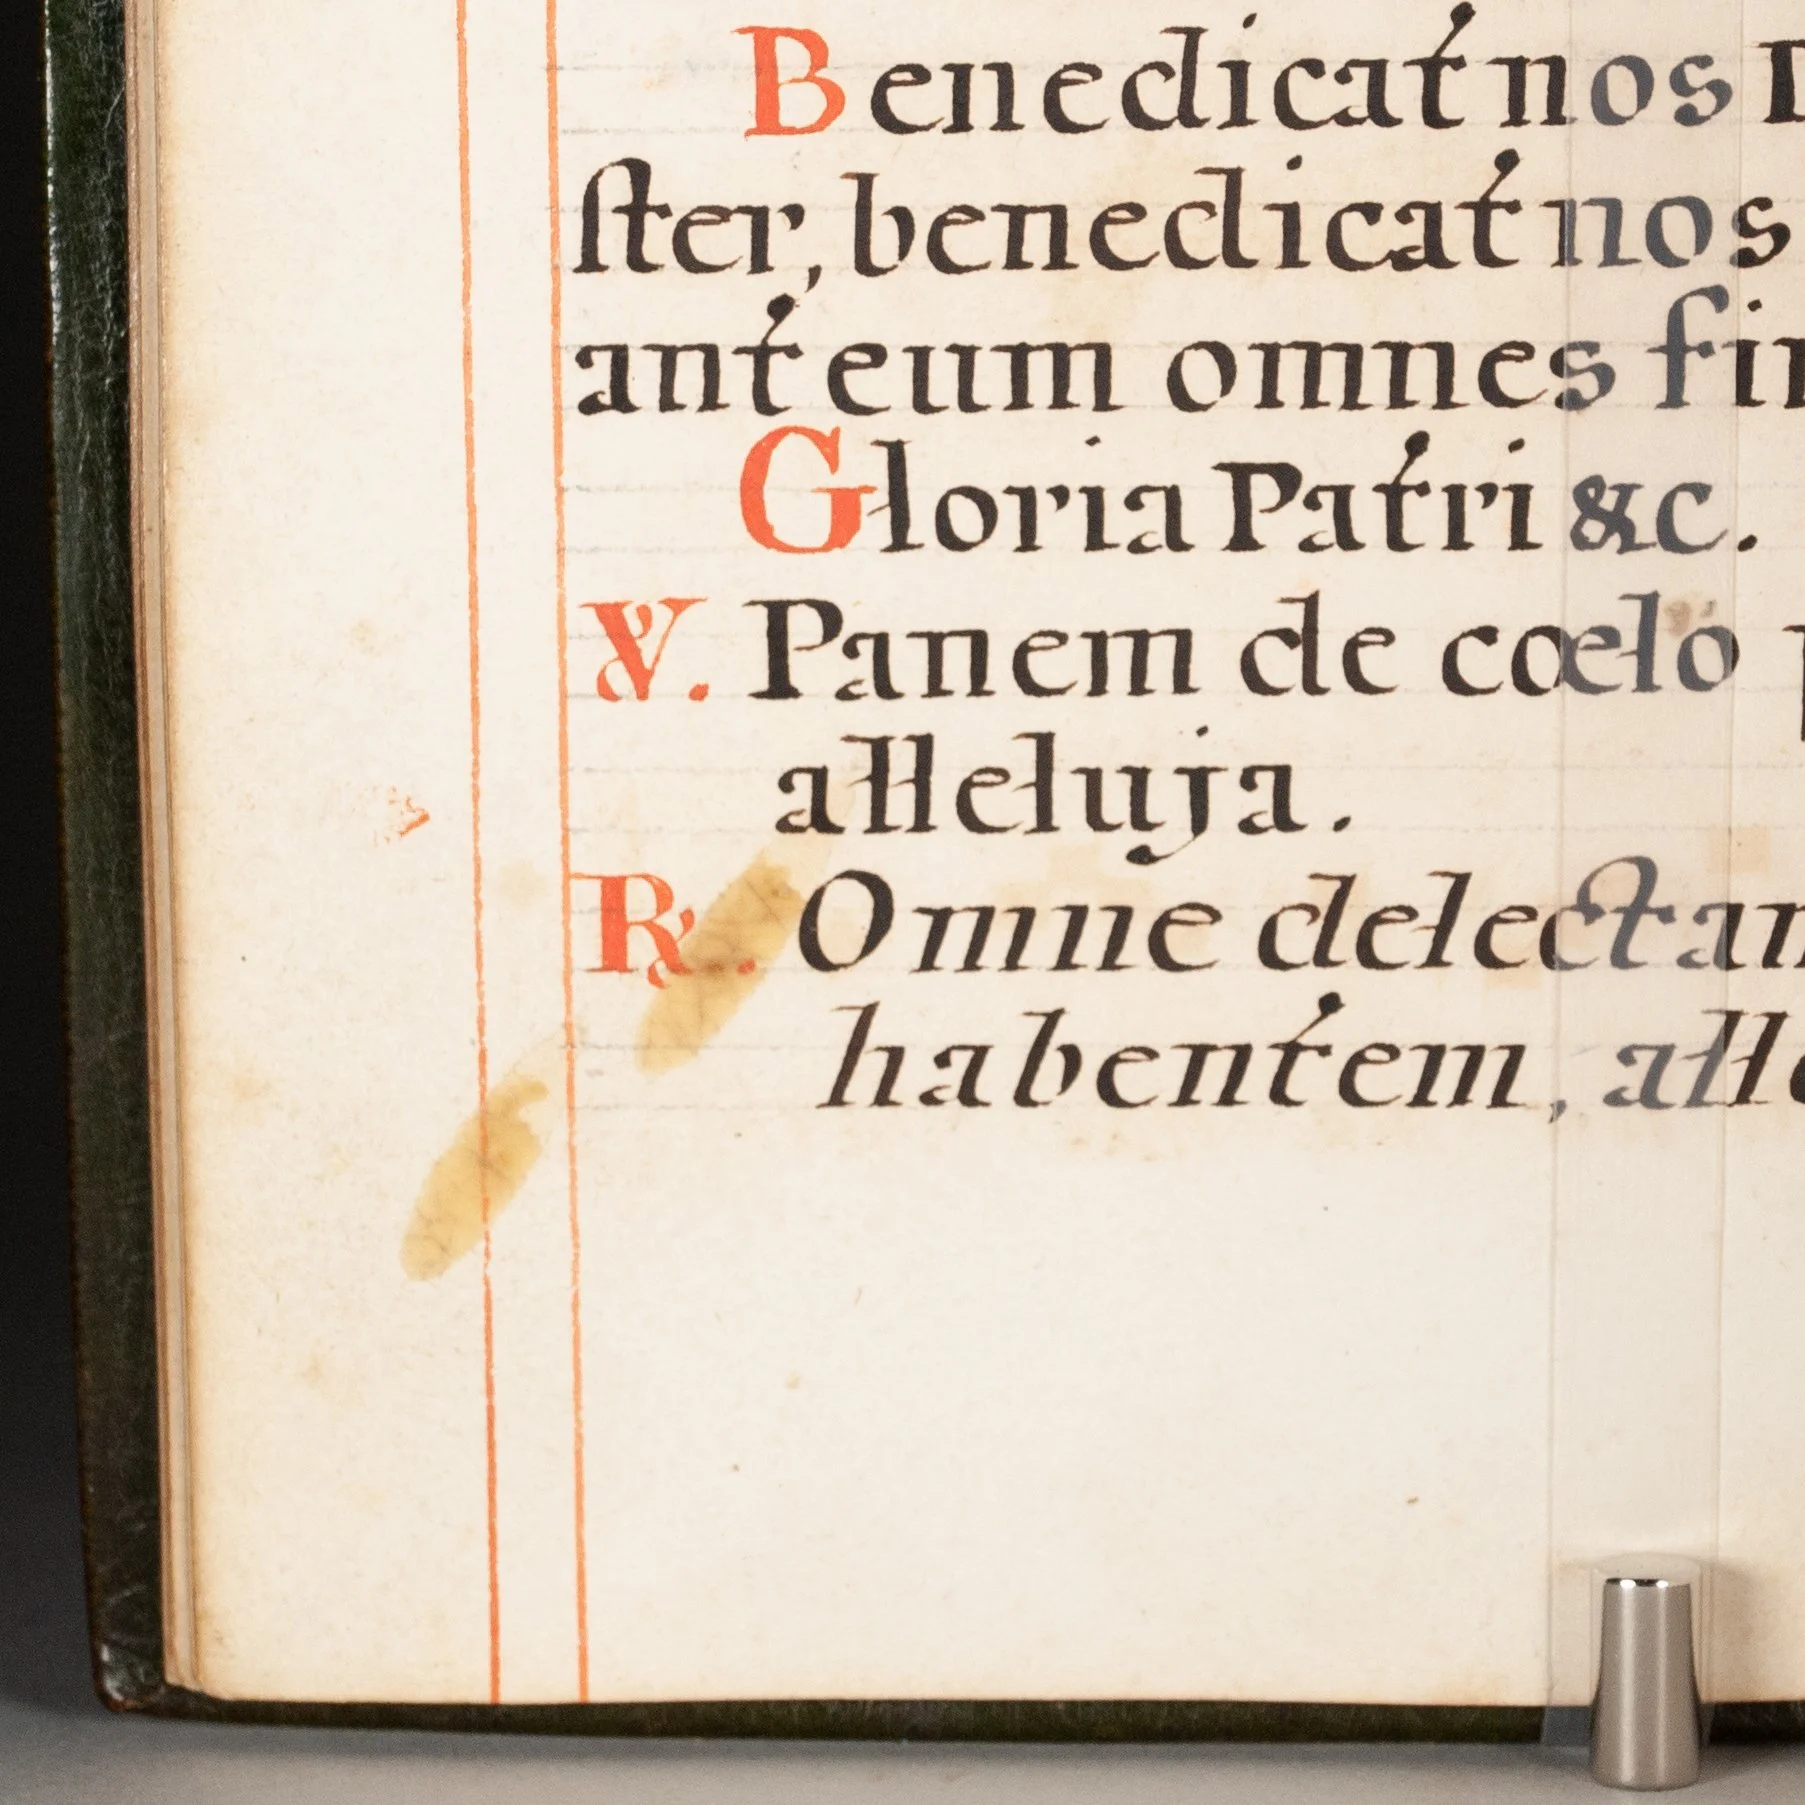 Benedicat nos D
ſter, benedicat nos
ant eum omnes fin
Gloria Patri &c.
℣. Panem de cœlo p
alleluja.
℟. Omne delectam
habentem, alle